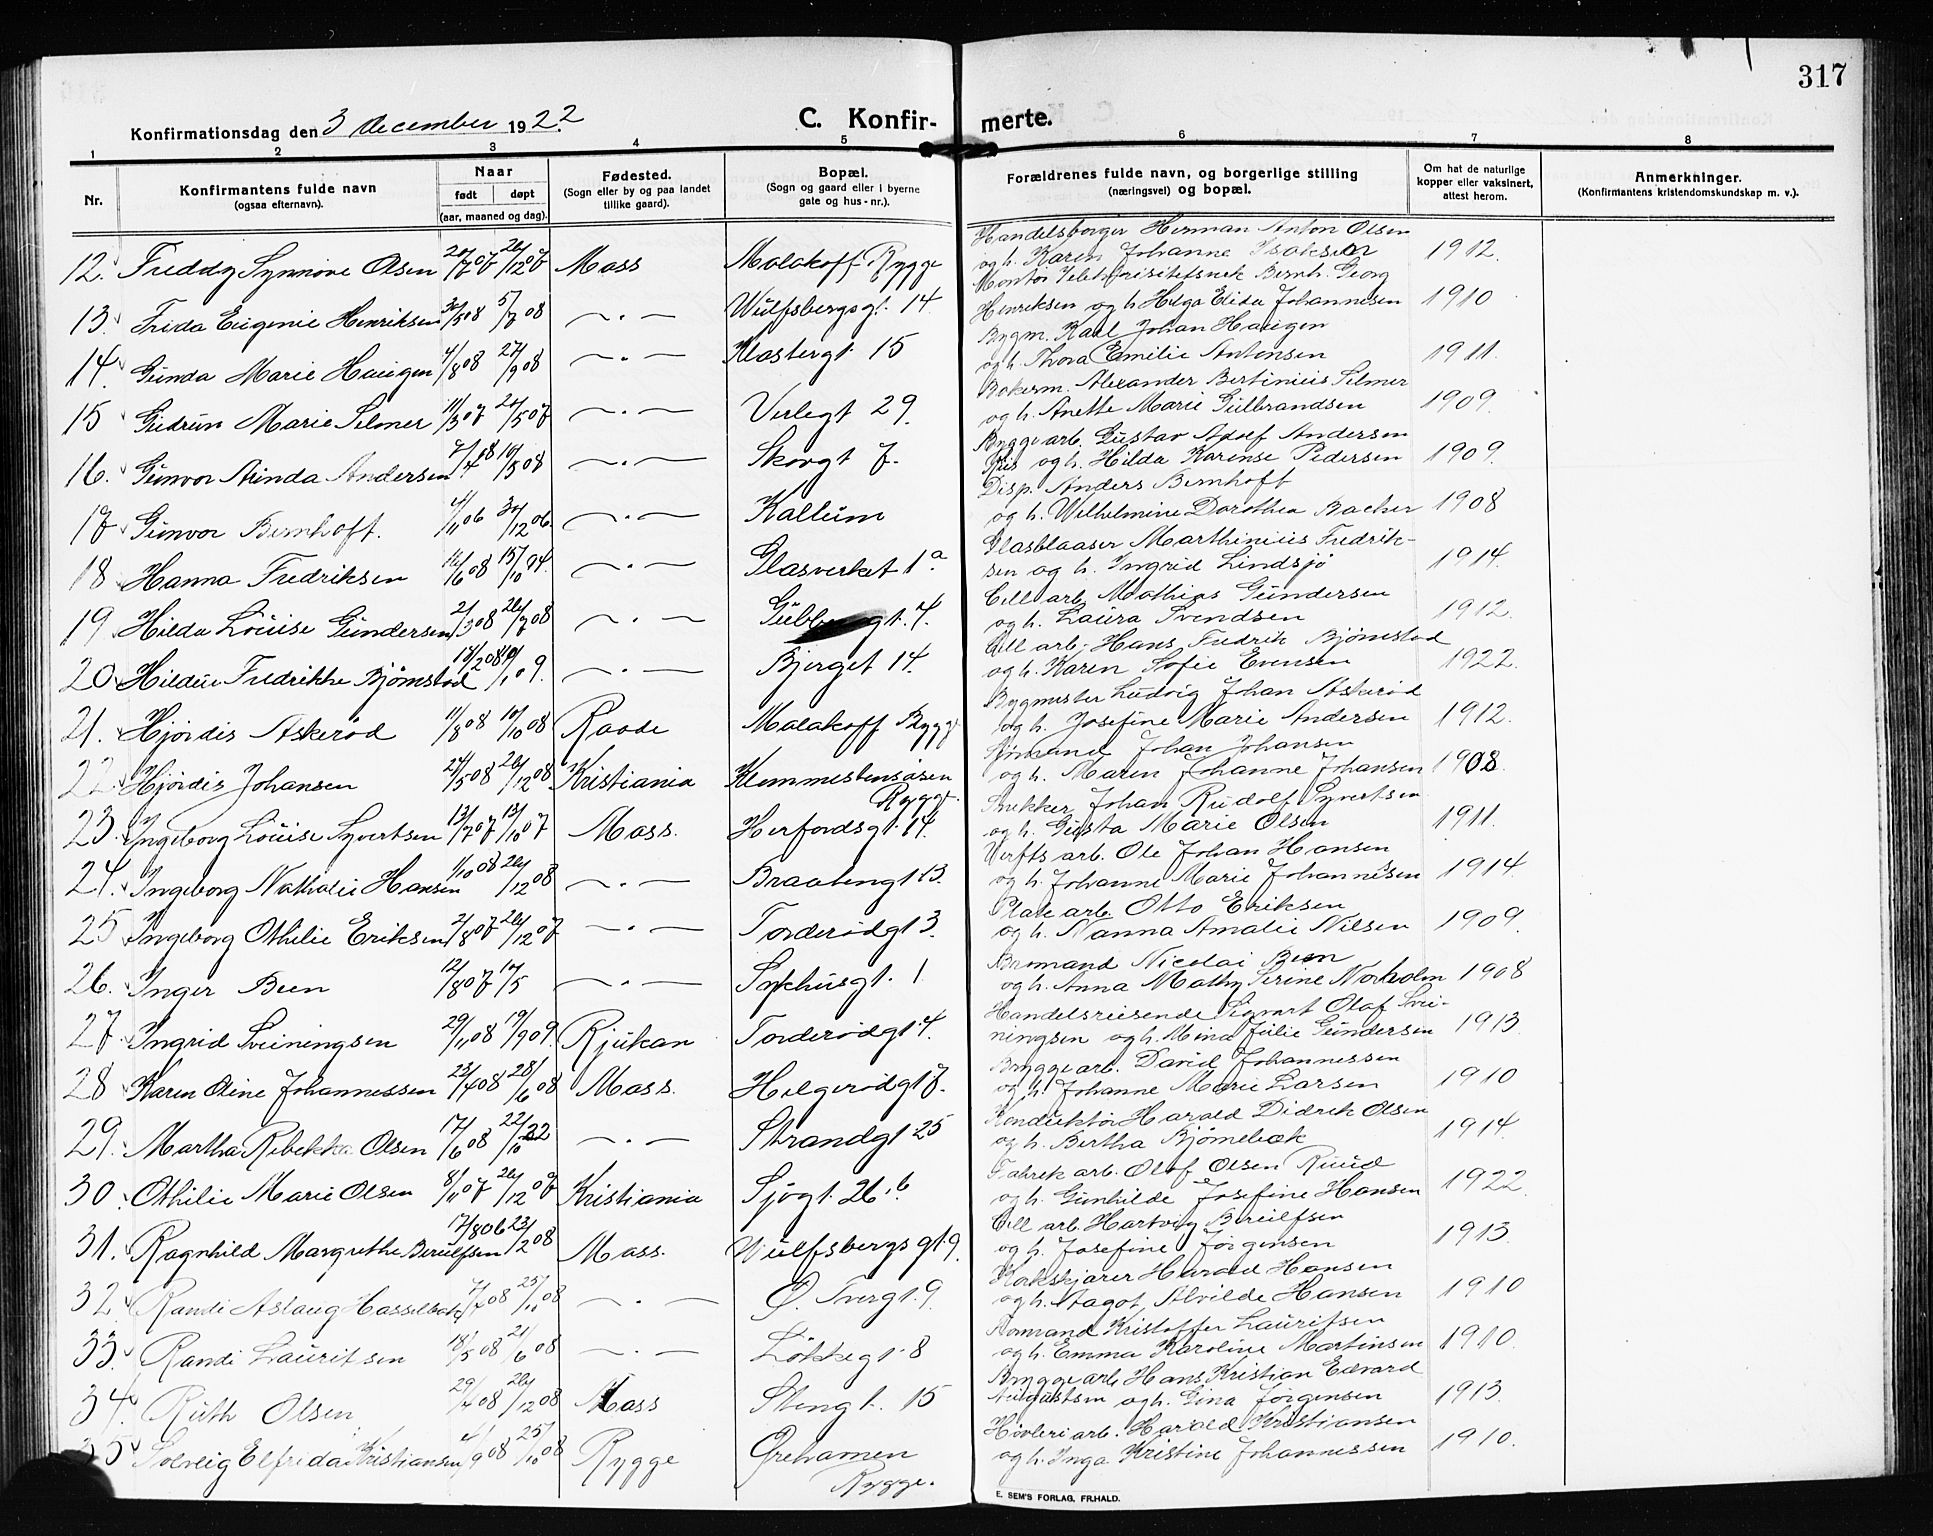 317
Konfirmationsdag den 3 december 1922.
C. Konfir- merte.
1 2 3 4 5 6 7 8
Nr.
Konfirmantens fulde navn
(ogsaa efternavn).
Naar
født døpt
(aar, maaned og dag).
Fødested.
(Sogn eller by og paa landet
tillike gaard).
Bopæl.
(Sogn og gaard eller i byerne
gate og hus-nr.).
Forældrenes fulde navn, og borgerlige stilling
(næringsvei) og bopæl.
Om hat de naturlige
kopper eller vaksinert,
attest herom.
Anmerkninger.
(Konfirmantens kristendomskundskap m. v.).
Handelsborger Herman Anton Olsen
12. Freddy Synnøve Olsen 20/7 07 26/12 07 Moss Malakoff Rygge og h. Karen Johanne Isaksen 1912.
Bernh. Georg
13. Frida Eugenie Henriksen 30/5 08 5/7 08 —.— Wulfsbergsgt. 14 Henriksen og h. Helga Elida Johannesen 1910
Bygm. Karl Johan Haugen
14. Gunda Marie Haugen 4/8 08 27/9 08 —.— Klostergt. 15 og h. Thora Emilie Antonsen 1911.
Bakerm. Alexander Bertinius Selmer
15 Gudrun Marie Selmer 11/3 07 20/5 07 —.— Verlegt 29. og h. Anette Marie Gulbrandsen 1909.
Bryggearb. Gustav Adolf Andersen
16. Gunvor Arinda Andersen 7/4 08 10/5 08 —.— Skovgt 7. og h. Hilda Karense Pedersen 1909.
Disp. Anders Bernhoft
17 Gunvor Bernhoft. 4/11 06 30/12 06. —.— Kallum og h. Wilhelmine Dorothea Bacher 1908
Glasblaaser Marthinius Fredrik-
18 Hanna Fredriksen 14/6 08 15/10 94. —.— Glasverket 1a sen og h. Ingrid Lindsjø 1914.
Cell arb. Mathias Gundersen
19 Hilda Louise Gundersen 2/3 08 26/7 08 —.— gt. 4. og h. Laura Svendsen 1912.
Cell arb. Hans Fredrik Bjørnstad
20. Hildur Fredrikke Bjørnstad 18/2 08 10/1 09. —.— Bjerget 14. og h. Karen Sofie Evensen 1922.
Bygmester Ludvig Johan Askerød
21. Hjørdis Askerød 11/8 08 10/10 08 Raade Malakoff Rygge og h. Josefine Marie Andersen 1912.
Sjømand Johan Johansen
22. Hjørdis Johansen 24/5 08 26/12 08 Kristiania Klommestensåsen Rygge. og h. Maren Johanne Johansen 1908.
Snekker Johan Rudolf Syvertsen
23. Ingeborg Louise Syvertsen 13/7 07 13/10 07 Moss. Herfordsgt. 14. og h. Gusta Marie Olsen 1911.
Verfts arb. Ole Johan Hansen
24. Ingeborg Nathalie Hansen 1/10 08 26/12 08 —.— Braatengt 13. og h. Johanne Marie Johannesen 1914.
Plate arb. Otto Eriksen
25 Ingeborg Othilie Eriksen 2/8 07 26/12 07 —.— Torderødgt 3. og h. Nanna Amalie Nilsen 1909.
Nicolai Been
26. Inger Been 12/8 07 17/5 —.— Sykhusgt. 1 og h. Anna Mathy Serine Norholm 1908
Handelsreisende Sigvart Olaf Svei-
27. Ingrid Sveiningsen 29/11 08 19/9 09. Rjukan Torderødgt. 4. ningsen og h. Mina Julie Gundersen 1913.
Bryggearb. David Johannessen
28 Karen Oline Johannessen 23/4 08 28/6 08 Moss. Helgerødgt 7. og h. Johanne Marie Larsen 1910
Konduktør Harald Didrik Olsen
29. Martha Rebekka Olsen 17/6 08 22/10 22 —.— Strandgt 25 og h. Bertha Bjørnebæk 1914.
Fabrik arb. Olof Olsen Ruud
30. Othilie Marie Olsen 8/11 07 26/12 07 Kristiania Sjøgt. 26.b. og h. Gunhilde Josefine Hansen 1922.
Cell arb. Hartvig Berulfsen
31. Ragnhild Margrethe Berulfsen 17/8 06 23/2 08 Moss. Wulfsbergsgt 9. og h. Josefine Jørgensen 1913.
Korkskjærer Harald Hansen
32. Randi Aslaug Hasselbæk 7/7 08 25/11 08 —.— Ø. Tvergt. 9. og h. Aagot, Alvilde Hansen 1910
Kristoffer Lauritsen
33. Randi Lauritsen 18/5 08 21/6 08 —.— Løkkegt. 8 og h. Emma Karoline Martinsen 1910.
Brygge arb. Hans Kristian Edvard
34. Ruth Olsen 29/4 08 26/12 08 Moss Stengt. 15 Augustsen og h. Gina Jørgensen 1913.
Høvleri arb. Harald Kristiansen
35 Solveig Elfrida Kristiansen 4/9 08 25/10 08 Rygge Ørehamen Rygge. og h. Inga Kristine Johannessen 1910.
E. SEM'S FORLAG, FR.HALD.